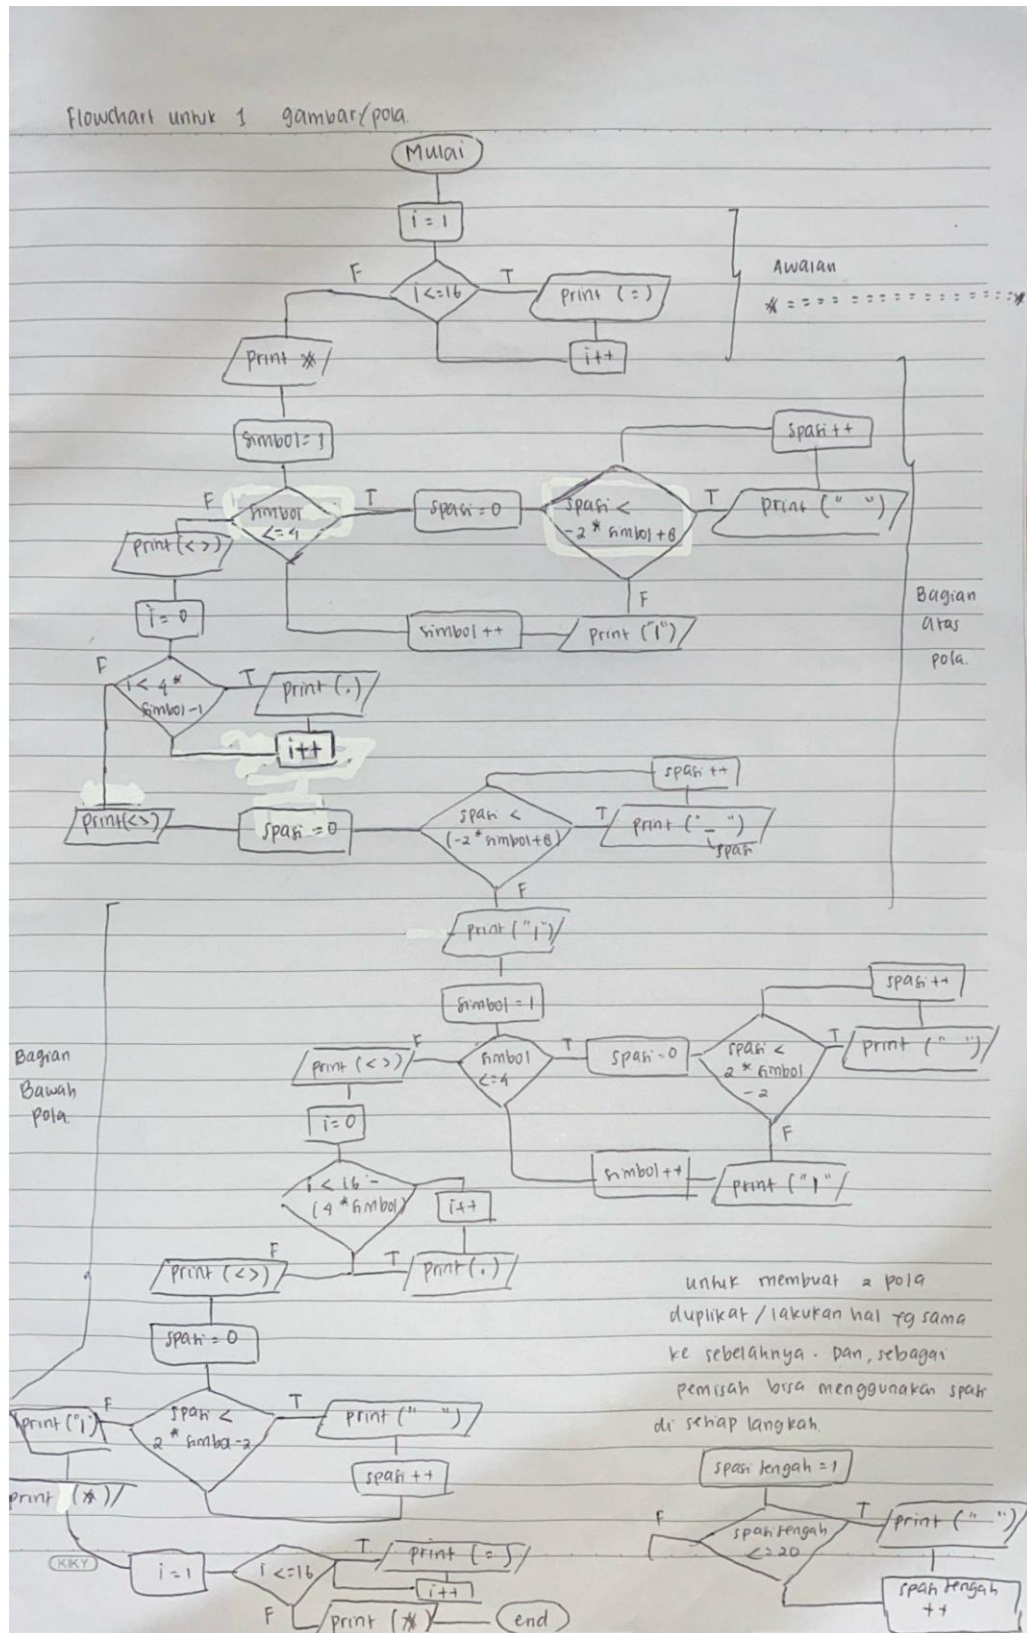 Flowchart untuk 1 gambar/pola.
Mulai
i = 1
F
i <= 16
T
print (=)
i++
Awalan
* = = = = = = = = = = = = = = = = *
print *
simbol = 1
F
simbol
<= 4
T
spasi = 0
spasi <
-2 * simbol + 8
T
print (" ")
spasi ++
F
print ("|")
simbol ++
Bagian
atas
pola.
print (< >)
i = 0
F
i < 4 *
simbol - 1
T
print (.)
i++
print (<>)
spasi = 0
spasi <
(-2 * simbol + 8)
T
print ("_")
spasi
spasi ++
F
print ("|")
simbol = 1
F
simbol
<= 4
T
spasi = 0
spasi <
2 * simbol
- 2
T
print (" ")
spasi ++
F
print ("|"
simbol ++
Bagian
Bawah
pola.
print (< >)
i = 0
i < 16 -
(4 * simbol)
i++
F
T
print (.)
print (<>)
spasi = 0
F
spasi <
2 * simbol - 2
T
print (" ")
spasi ++
print ("|")
print (*)
i = 1
i <= 16
T
print (=)
i++
F
print (*)
end
untuk membuat 2 pola
duplikat / lakukan hal yg sama
ke sebelahnya. Dan, sebagai
pemisah bisa menggunakan spasi
di setiap langkah.
spasi tengah = 1
F
spasi tengah
<= 20
T
print (" ")
spasi tengah
++
KIKY